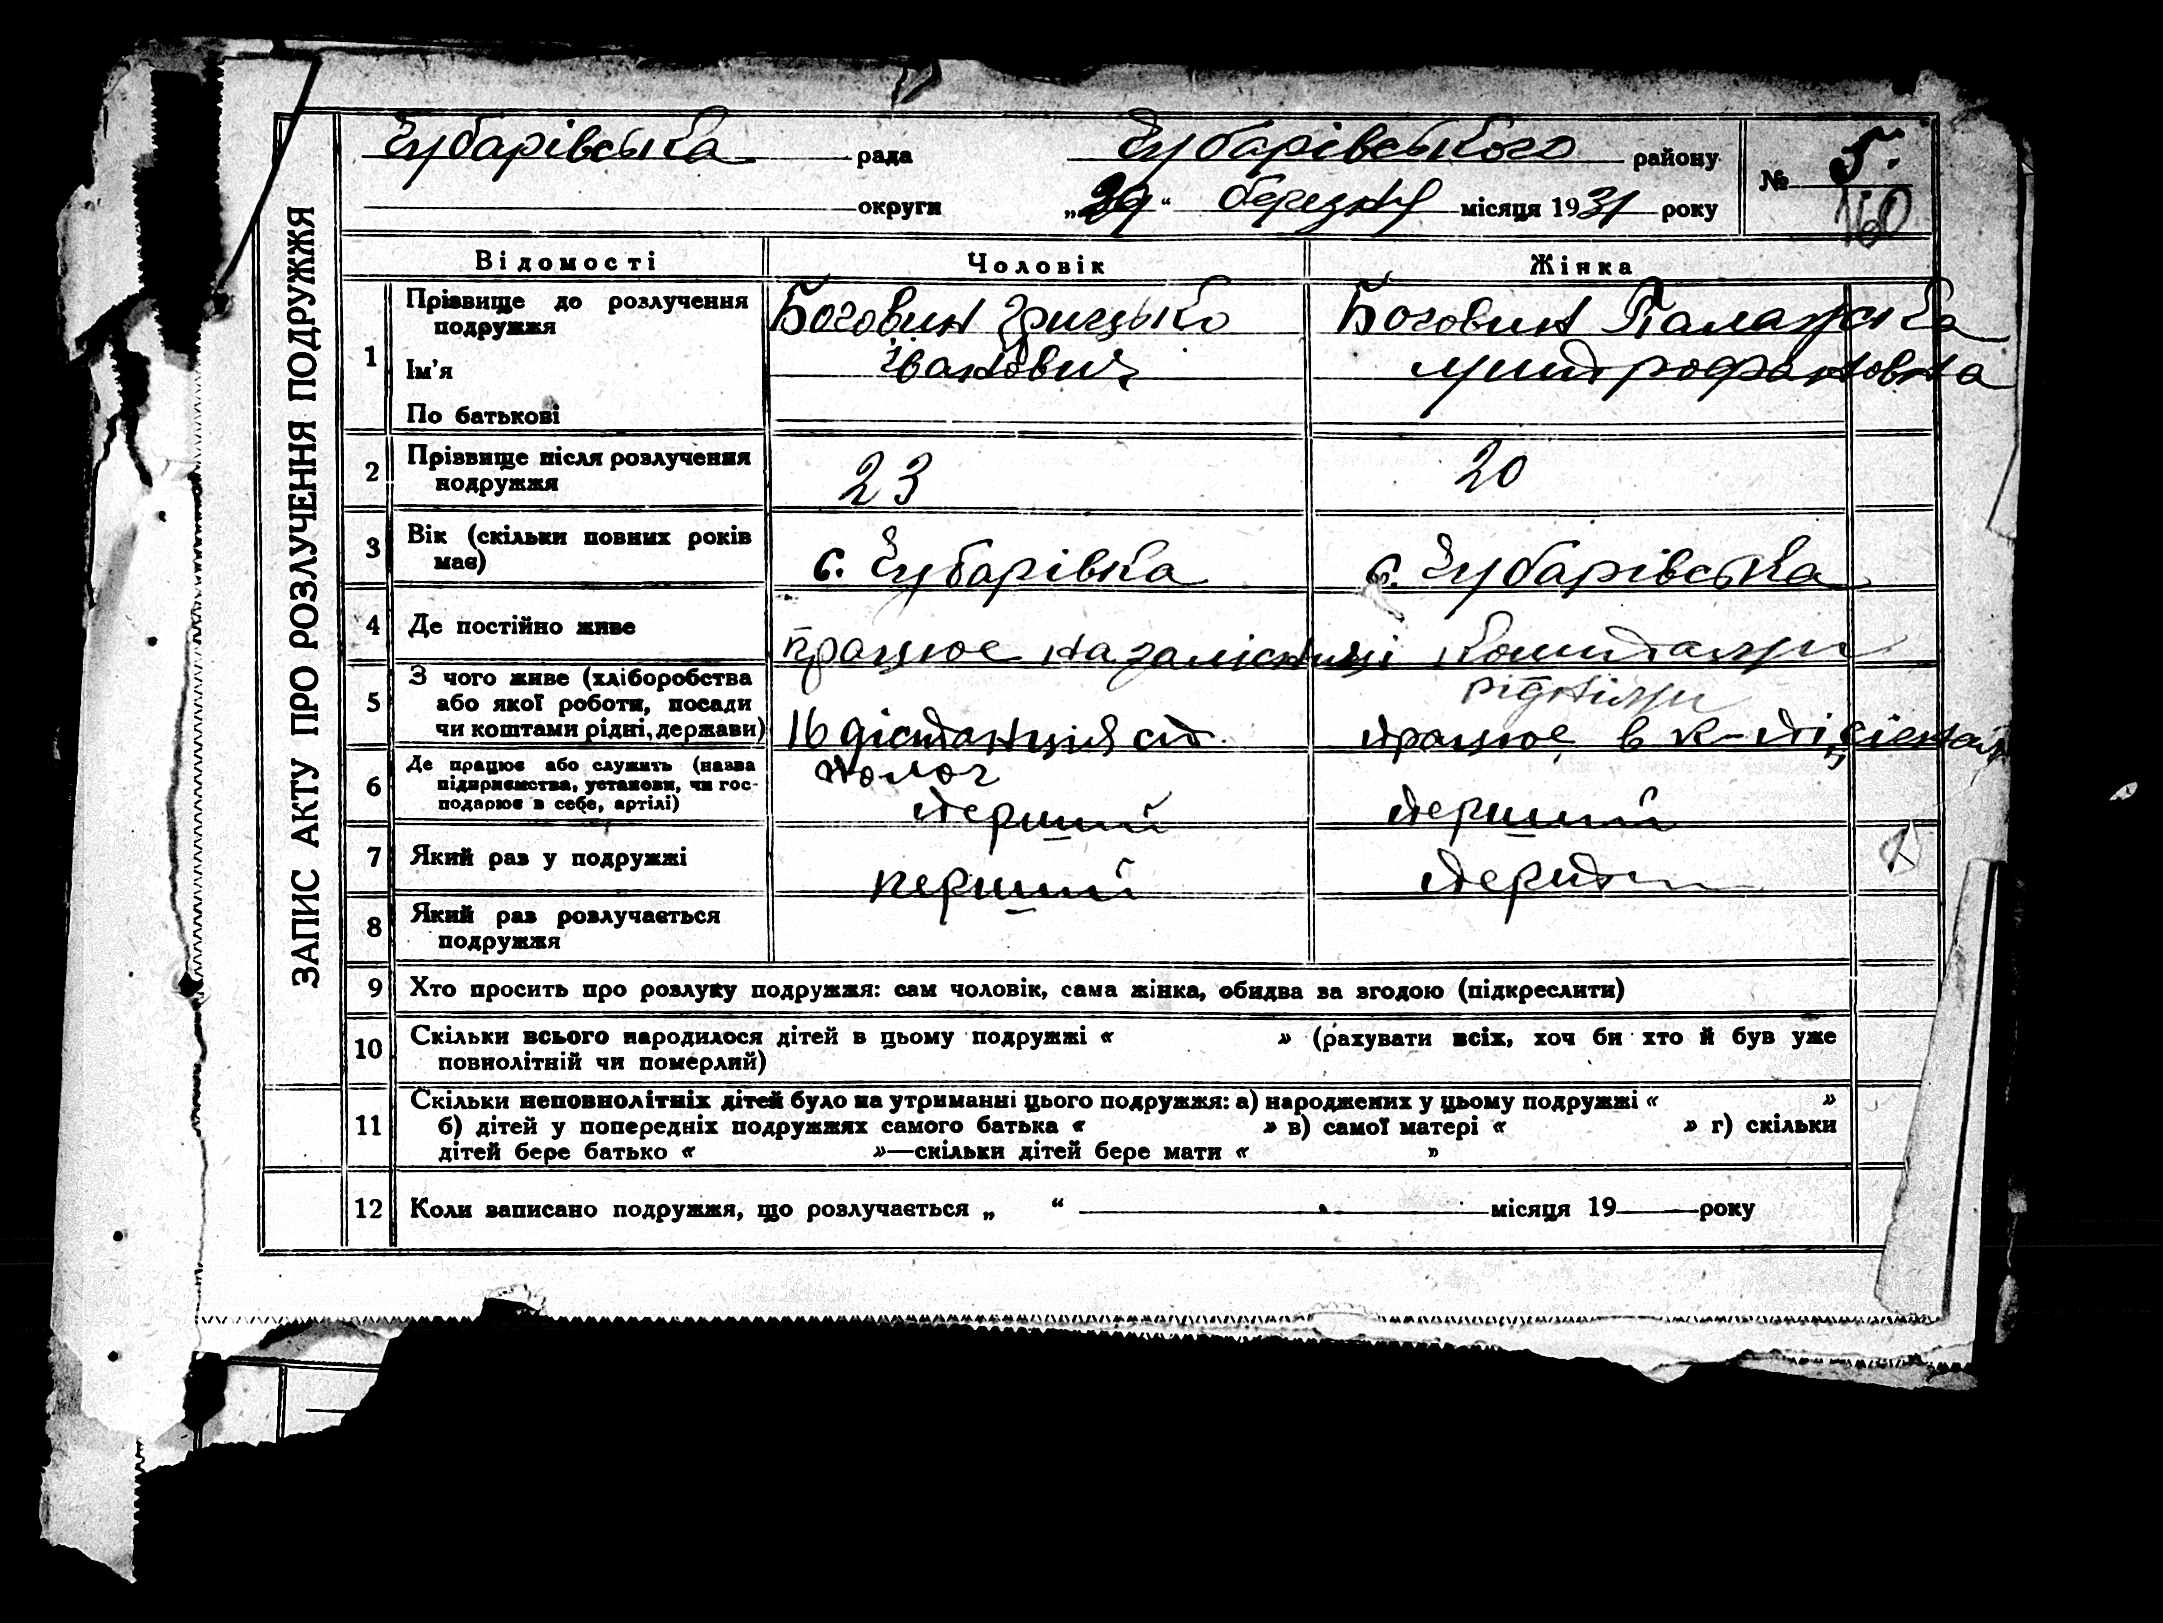 ЗАПИС АКТУ ПРО РОЗЛУЧЕННЯ ПОДРУЖЖЯ
Чубарівська рада Чубарівського району № 5.
округи „29“ березня місяця 1931 року 160
Відомості Чоловік Жінка
1 Прізвище до розлучення подружжя Боговин Грицько Боговин Палажка
Ім'я Іванович Митрофановна
По батькові
2 Прізвище після розлучення подружжя 23 20
3 Вік (скільки повних років має) с. Чубарівка с. Чубарівська
4 Де постійно живе працює на залізниці коштами
рідніми
5 З чого живе (хліборобства або якої роботи, посади чи коштами рідні, держави) 16 дістанція працює в к-ті
6 Де працює або служить (назва підприємства, установи, чи господарює в себе, артілі) перший перший
7 Який раз у подружжі перший
8 Який раз розлучається подружжя
9 Хто просить про розлуку подружжя: сам чоловік, сама жінка, обидва за згодою (підкреслити)
10 Скільки всього народилося дітей в цьому подружжі « » (рахувати всіх, хоч би хто й був уже
повнолітній чи померлий)
11 Скільки неповнолітніх дітей було на утриманні цього подружжя: а) народжених у цьому подружжі « »
б) дітей у попередніх подружжях самого батька « » в) самої матері « » г) скільки
дітей бере батько « »—скільки дітей бере мати « »
12 Коли записано подружжя, що розлучається „ “ місяця 19 року